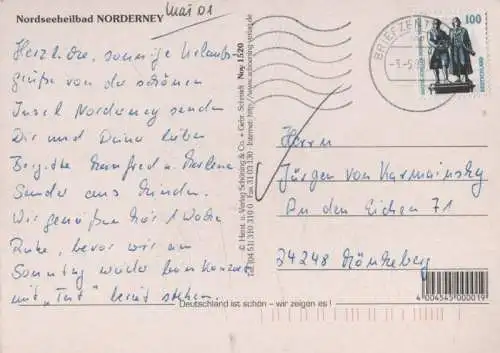 Nordseeheilbad NORDERNEY
Mai 01
Herzliche, sonnige Urlaubs-
grüße von der schönen
Insel Norderney senden
Dir und Deiner lieben
Brigitte Manfred und Marlene
Sander aus Minden.
Wir genießen hier 1 Woche
Ruhe, bevor wir am
Sonntag wieder beim Konzert
mit "Tut" bereit stehen.
© Herst. u. Verlag Schöning & Co. + Gebr. Schmidt Noy 1520
Tel. (04 51) 310 310 Fax 31 03 130 Internet: http://www.schoening-verlag.de
BRIEFZENTR
100
Herrn
Jürgen von Karmainsky
An den Eichen 71
24248 Mönkeberg
Deutschland ist schön – wir zeigen es!
4 004545 000019